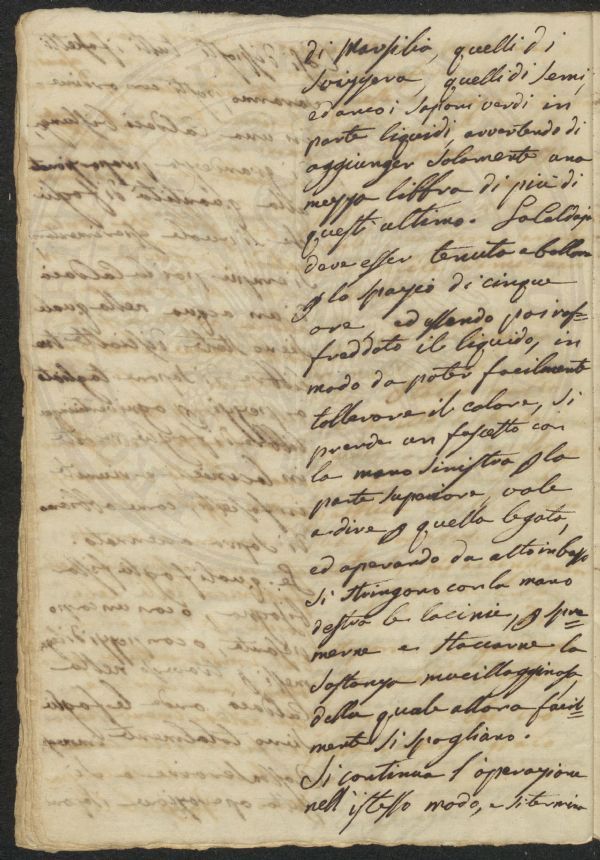 di Marsilia, quelli di
Svizzera, quelli di semi,
ed anco i saponi verdi in
parte liquidi, avvertendo di
aggiunger solamente una
mezza libbra di più di
quest'ultimo. La Caldaja
deve esser tenuta a bollore
p lo spazio di cinque
ore, ed essendo poi raf=
freddato il liquido, in
modo da poter facilmente
tollerare il calore, si
prende un fascetto con
la mano sinistra p la
parte superiore, vale
a dire p quella legata,
ed operando da alto in basso
si stringono con la mano
destra le lacinie, p spre=
merne e staccarne la
sostanza mucillagginosa,
della quale allora facil=
mente si spogliano.
Si continua l'operazione
nell'istesso modo, e si termina